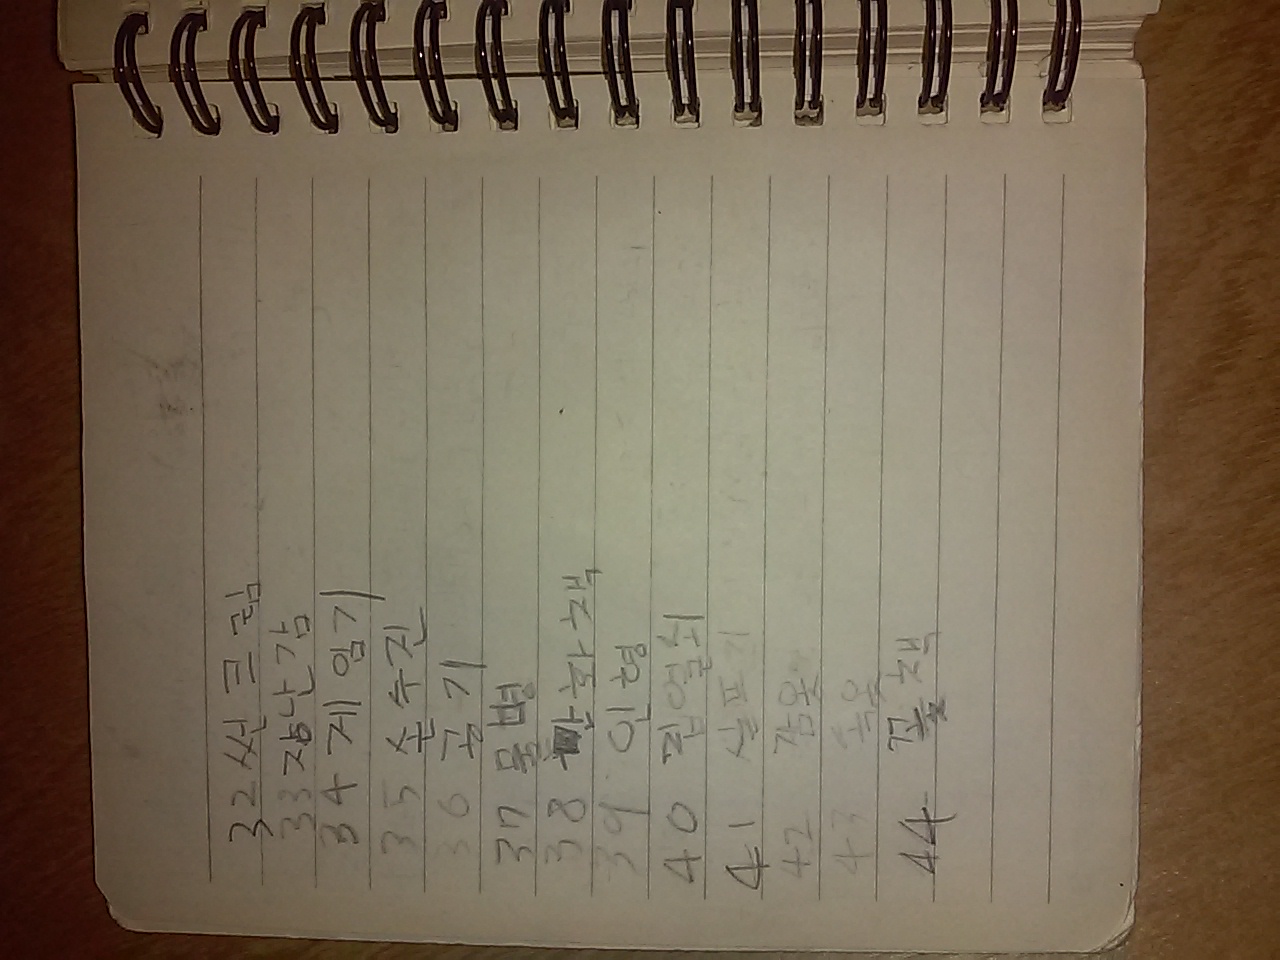 32 썬크림
33 장난감
34 게임기
35 손수진
36 공기
37 물병
38 만화책
39 인형
40 집열쇠
41 실프기
42 잠옷
43 속옷
44 책